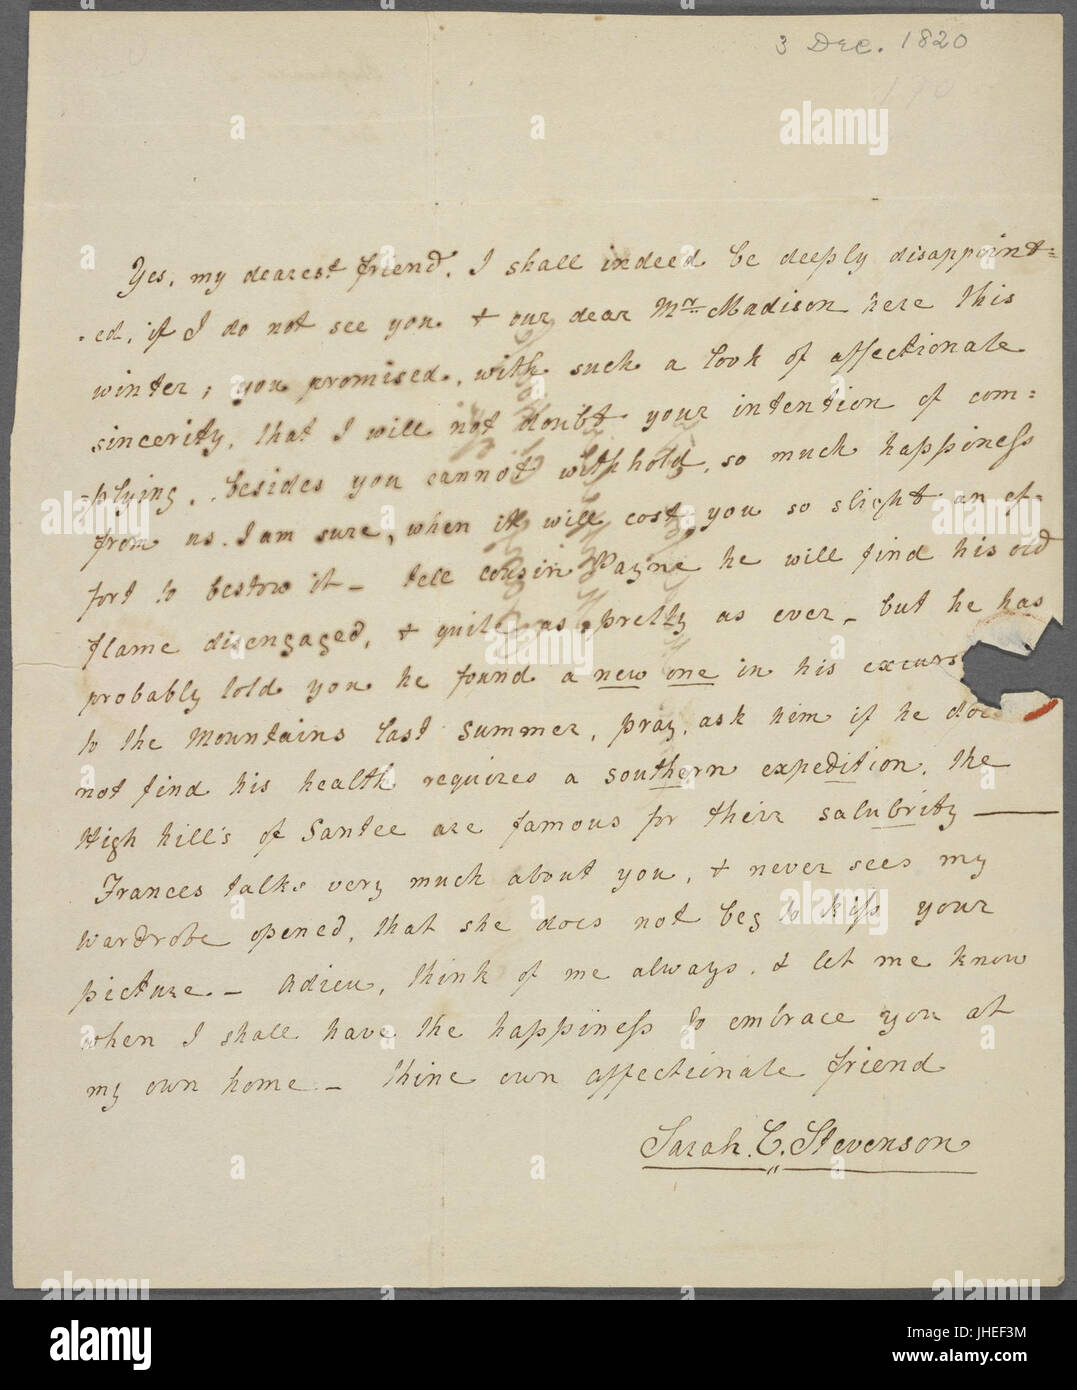 3 Dec. 1820
190
Yes, my dearest friend, I shall indeed be deeply disappoint=
=ed, if I do not see you & our dear Mr. Madison here this
winter, you promised, with such a look of affectionate
sincerity, that I will not doubt your intention of com=
=plying, besides you cannot withhold, so much happiness
from us. I am sure, when it will cost you so slight an ef=
fort to bestow it – tell cousin Payne he will find his old
flame disengaged, & quite as pretty as ever – but he has
probably told you he found a new one in his excurs
to the Mountains last Summer, pray, ask him if he does
not find his health requires a southern expedition, the
High hill's of Santee are famous for their salubrity —
Frances talks very much about you, & never sees my
wardrobe opened, that she does not beg to kiss your
picture – Adieu, think of me always, & let me know
when I shall have the happiness to embrace you at
my own home – thine own affectionate friend
Sarah. C. Stevenson
alamy
a
alamy stock photo
JHEF3M
www.alamy.com